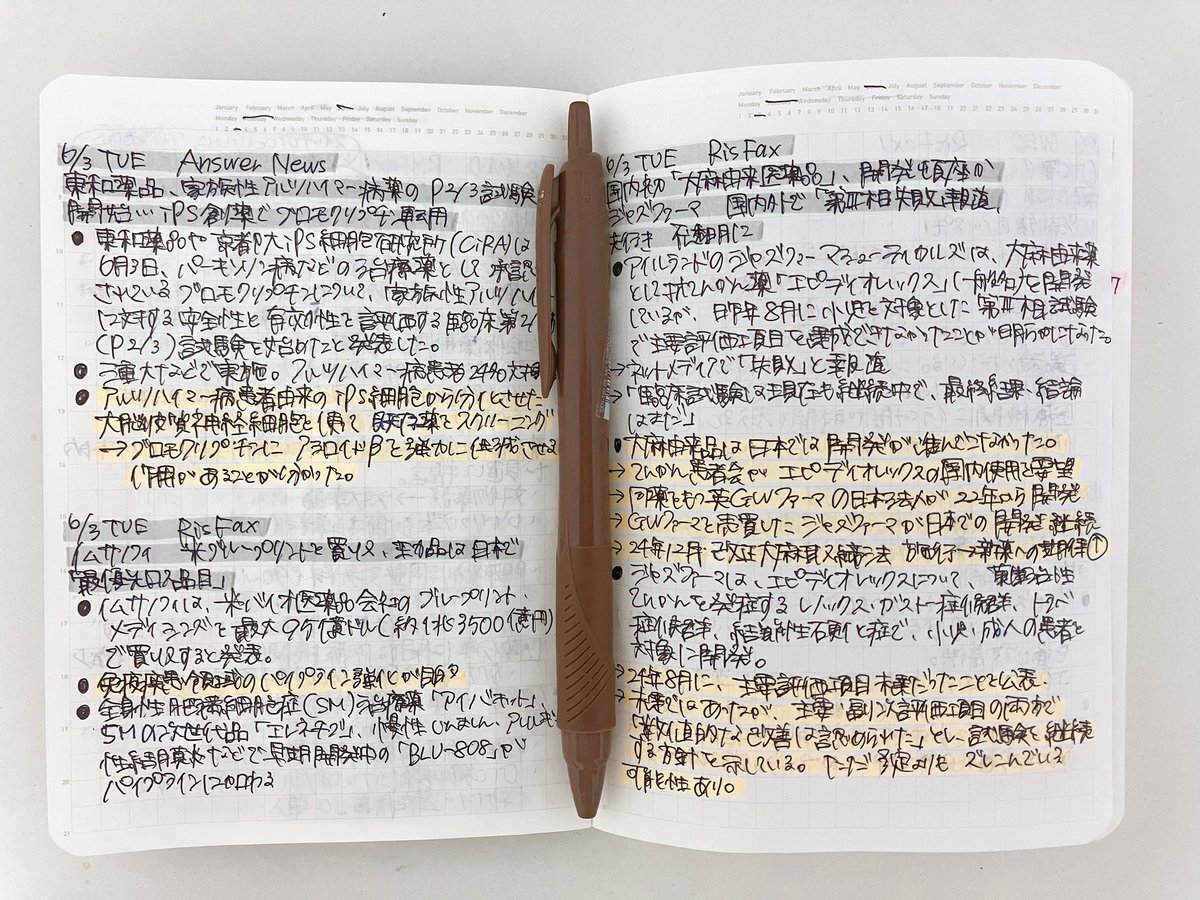 January February March April May July August September October November December
Monday Wednesday Thursday Friday Saturday Sunday
6/3 TUE Answer News
東和薬品、家族性アルツハイマー病薬のP2/3試験
開始…iPS創薬でブロモクリプチン転用
● 東和薬品や京都大iPS細胞研究所(CiRA)は
6月3日、パーキンソン病などの治療薬として承認
されているブロモクリプチンについて、「家族性アルツハイ
に対する安全性と有効性を評価する臨床第2/
(P2/3)試験を始めたと発表した。
● 三重大などで実施。アルツハイマー病患者24名対
● アルツハイマー病患者由来のiPS細胞から分化させた
大脳皮質神経細胞を使って既存薬をスクリーニング
→ブロモクリプチンにアミロイドβを強力に低減させる
作用があることが分かった。
6/3 TUE RisFax
仏サノフィ 米ブループリントを買収、主力品は日本で
「最優先口入品目」
● 仏サノフィは、米バイオ医薬品会社のブループリント・
メディシンズを最大95億ドル(約1兆3500億円)
で買収すると発表。
● 免疫疾患領域のパイプライン強化が目的
● 全身性肥満細胞症(SM)治療薬「アイバキット」、
SMの次世代品「エレネチブ」、慢性じんましん、アレルギ
性結膜炎などで早期開発中の「BLU-808」が
パイプラインに加わる
6/3 TUE RisFax
国内初「大麻由来医薬品」、開発頓座か
ジャズファーマ 国内外で「第Ⅲ相失敗」報道、
先行き
● アイルランドのジャズファーマシューティカルズは、大麻由来薬
として抗てんかん薬「エピディオレックス」(一般名)を開発
しているが、昨年8月に小児を対象とした「第Ⅲ相試験
で主要評価項目を達成できなかったことが明らかになった。
→ネットメディアで「失敗」と報道
→「臨床試験は現在も継続中で、最終結果・結論
はまだ」
● 大麻由来品は日本では開発が進んでこなかった。
→てんかん患者会がエピディオレックスの国内使用を要望
→同薬をもつ英GWファーマの日本法人が22年から開発
→GWファーマを買収したジャズファーマが日本での開発を継続
→24年12月 改正大麻取締法 施行 新薬への期待↑
● ジャズファーマは、エピディオレックスについて、薬剤治性
てんかんを発症するレノックス・ガストー症候群、ドラベ
症候群、結節性硬化症で、小児・成人の患者を
対象に開発。
→24年8月に、主要評価項目未達だったことを公表。
→未達ではあったが、主要・副次評価項目の両方で
「数値的な改善は認められた」とし、試験を継続
する方針を示している。ただ予定よりもズレこんでいる
可能性あり。
7